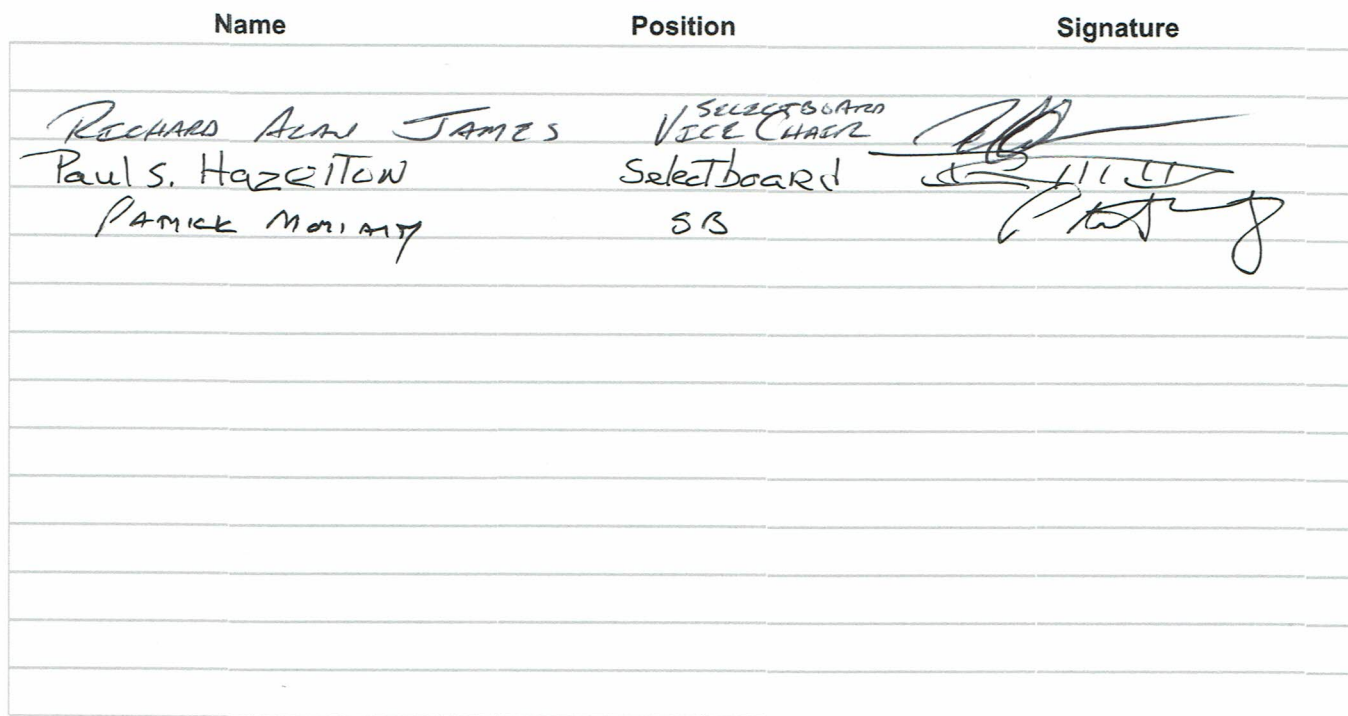 Name Position Signature
RICHARD ALAN JAMES SELECTBOARD VICE CHAIR
Paul S. HazelTon Selectboard
PATRICK MORIARTY SB